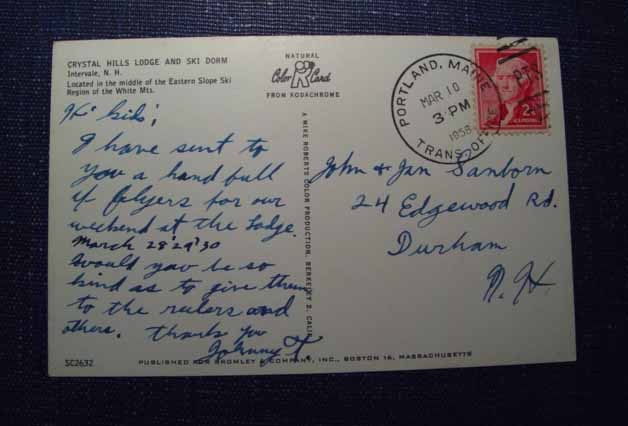 CRYSTAL HILLS LODGE AND SKI DORM
Intervale, N. H.
Located in the middle of the Eastern Slope Ski
Region of the White Mts.
Hi' kids',
I have sent to
you a hand full
of folyers for our
weekend at the Lodge.
March 28'29'30
Would you be so
kind as to give them
to the rulers and
others. thanks you
Johnny T.
SC2632
NATURAL
Color Card
FROM KODACHROME
A MIKE ROBERTS COLOR PRODUCTION, BERKELEY 2, CALIF.
PUBLISHED FOR BROMLEY & COMPANY, INC., BOSTON 16, MASSACHUSETTS
PORTLAND, MAINE
MAR 10
3 PM
1958
TRANS. OFFICE
2¢
John & Jan Sanborn
24 Edgewood Rd.
Durham
N. H.